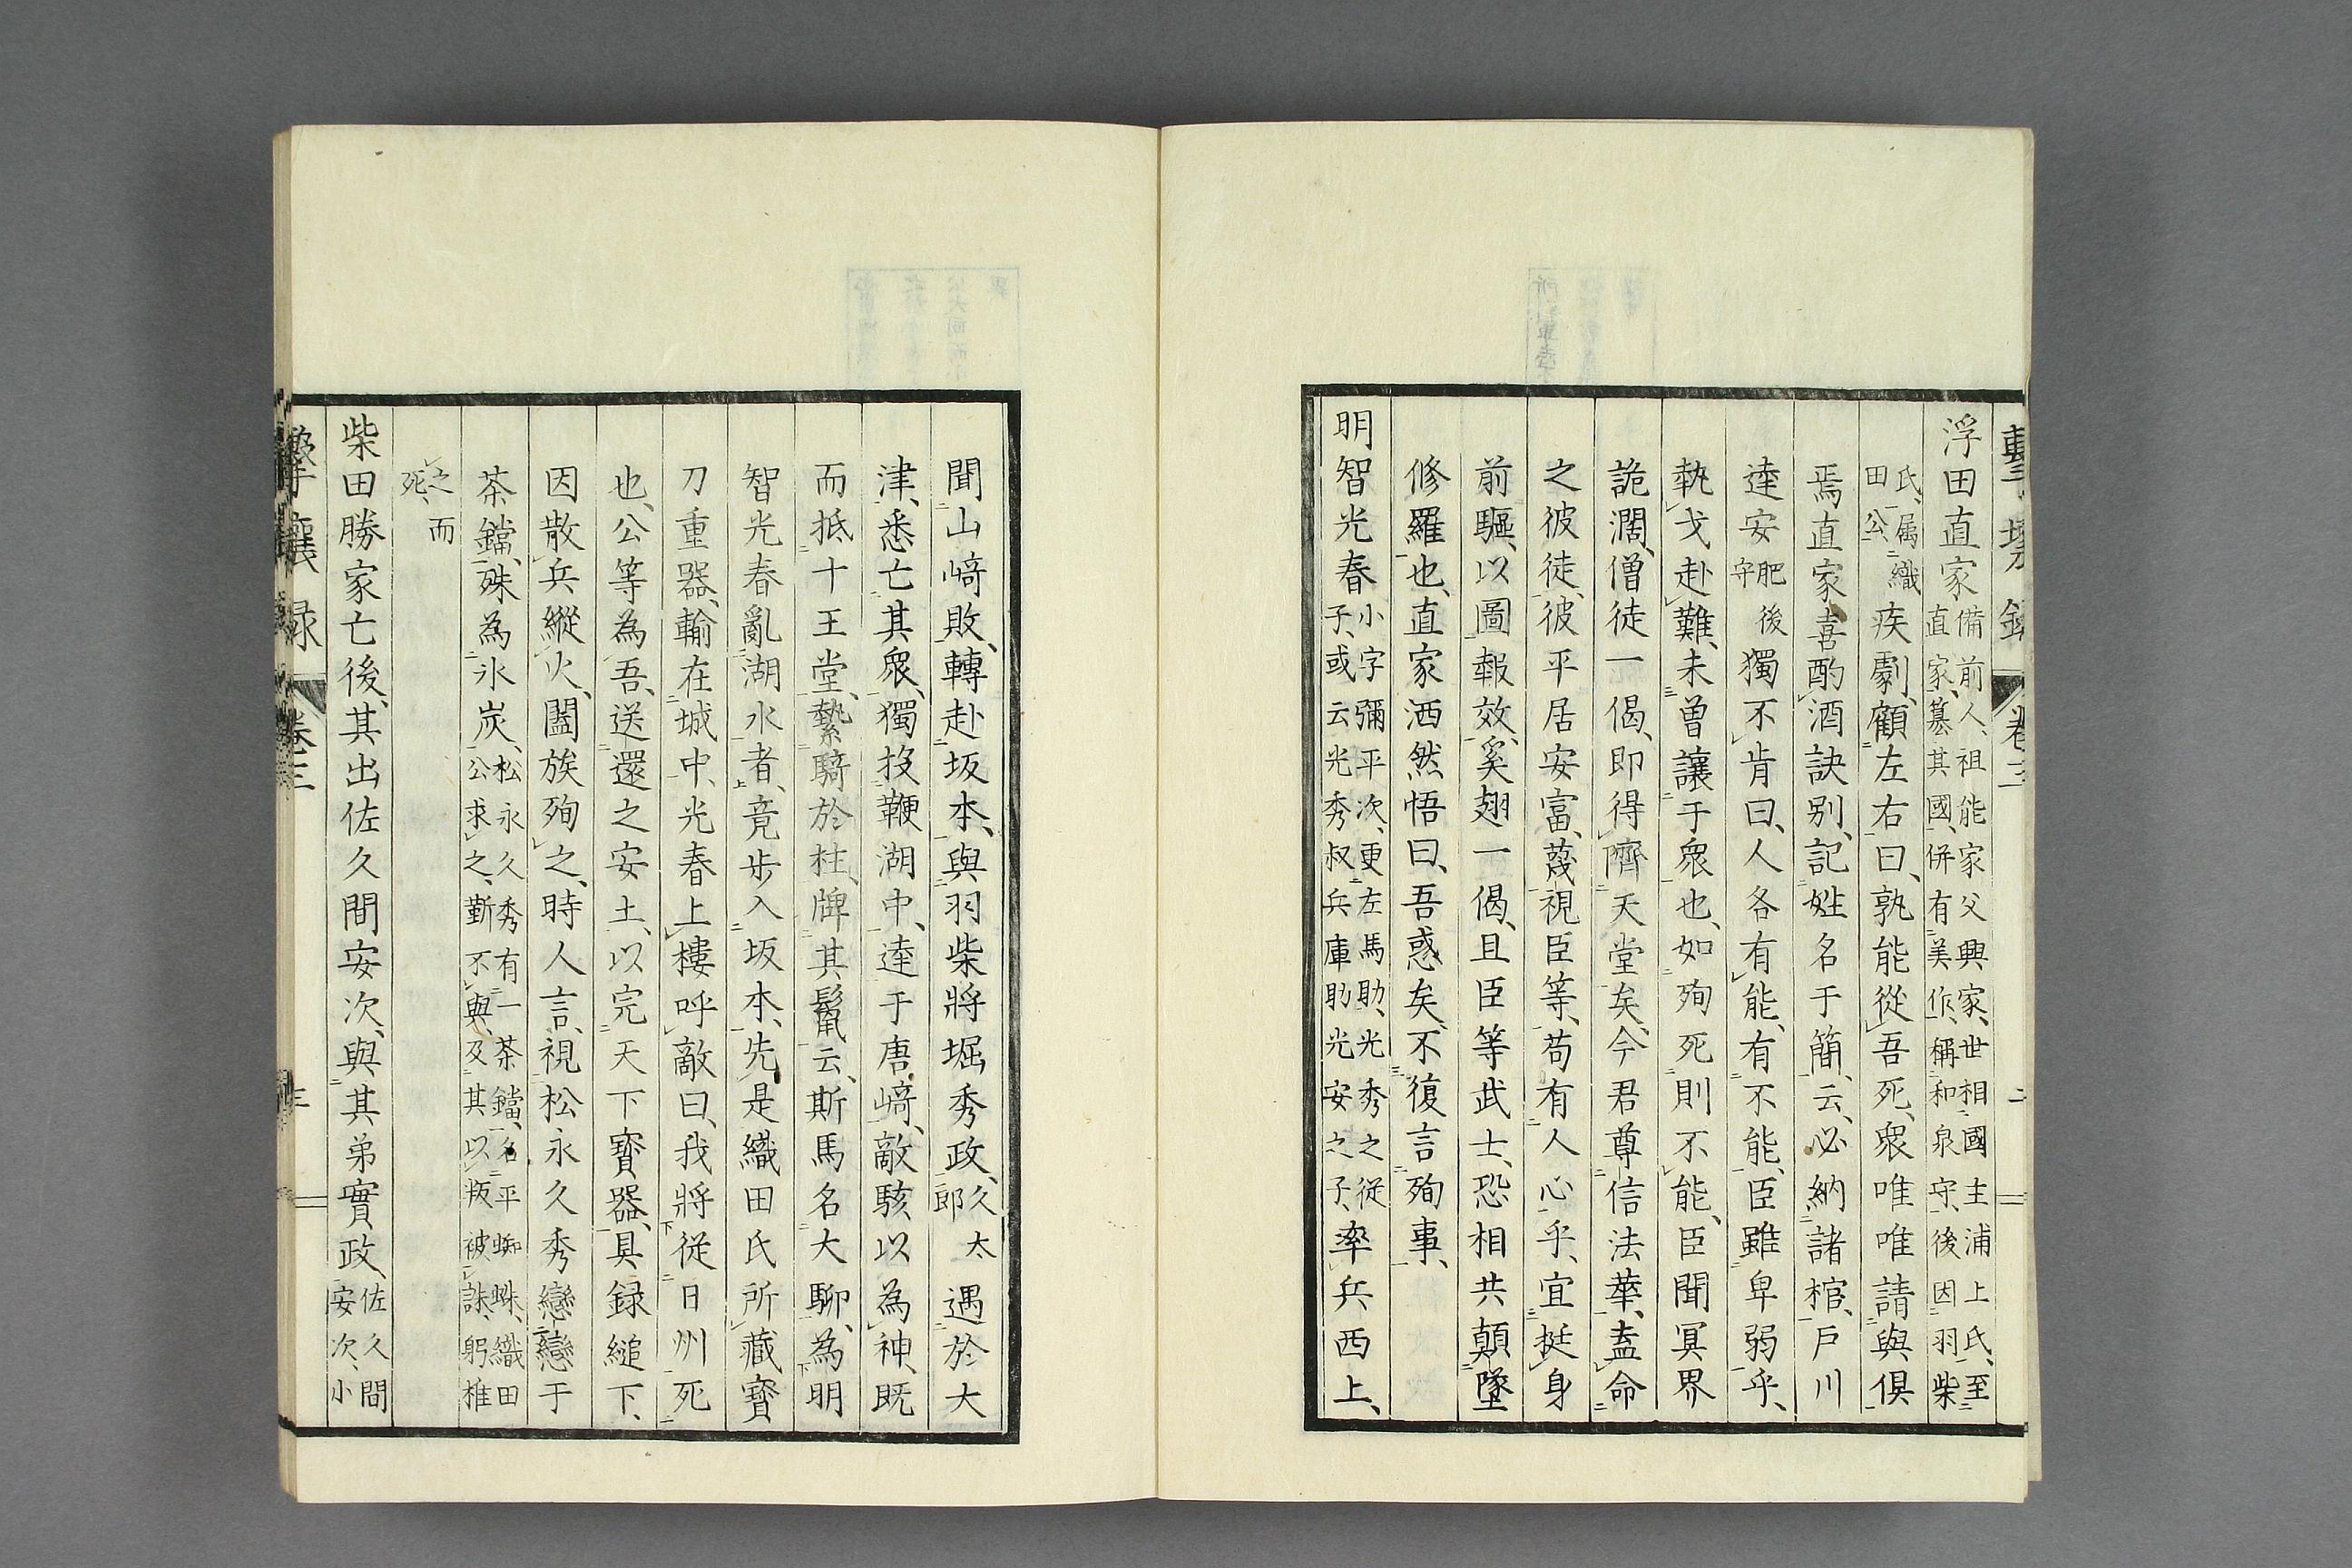 擊壤錄 卷三 二
浮田直家備前人、祖能家父興家、世相國主浦上氏、至直家、簒其國、併有美作、稱和泉守、後因羽柴
氏、属織田公、疾劇、顧左右曰、孰能從吾死、衆唯唯請與俱
焉直家喜酌酒訣別、記姓名于簡、云、必納諸棺、戸川
達安肥後守獨不肯曰、人各有能、有不能、臣雖卑弱乎、
執戈赴難、未曾讓于衆也、如殉死則不能、臣聞冥界
詭濶、僧徒一偈、即得躋天堂矣、今君尊信法華、盍命
之彼徒、彼平居安富、蔑視臣等、苟有人心乎、宜挺身
前驅、以圖報效、奚翅一偈、且臣等武士、恐相共顛墜
修羅也、直家洒然悟曰、吾惑矣、不復言殉事、
明智光春小字彌平次、更左馬助、光秀之從子、或云光秀叔兵庫助光安之子、率兵西上、
聞山﨑敗、轉赴坂本、與羽柴將堀秀政、久太郎遇於大
津、悉亡其衆、獨投鞭湖中、達于唐﨑、敵駭以為神、既
而抵十王堂、縶騎於柱、牌其鬣云、斯馬名大聊、為明
智光春亂湖水者、竟步入坂本、先是織田氏所藏寳
刀重器、輸在城中、光春上樓呼敵曰、我將從日州死
也、公等為吾、送還之安土、以完天下寳器、具録縋下、
因散兵縱火、闔族殉之、時人言、視松永久秀戀戀于
茶鐺、殊為氷炭、松永久秀有一茶鐺、名平蜘蛛、織田公求之、靳不與、及其以叛被誅、躬椎
之而死、
柴田勝家亡後、其出佐久間安次、與其弟實政、佐久間安次、小
擊壤録 卷三 三